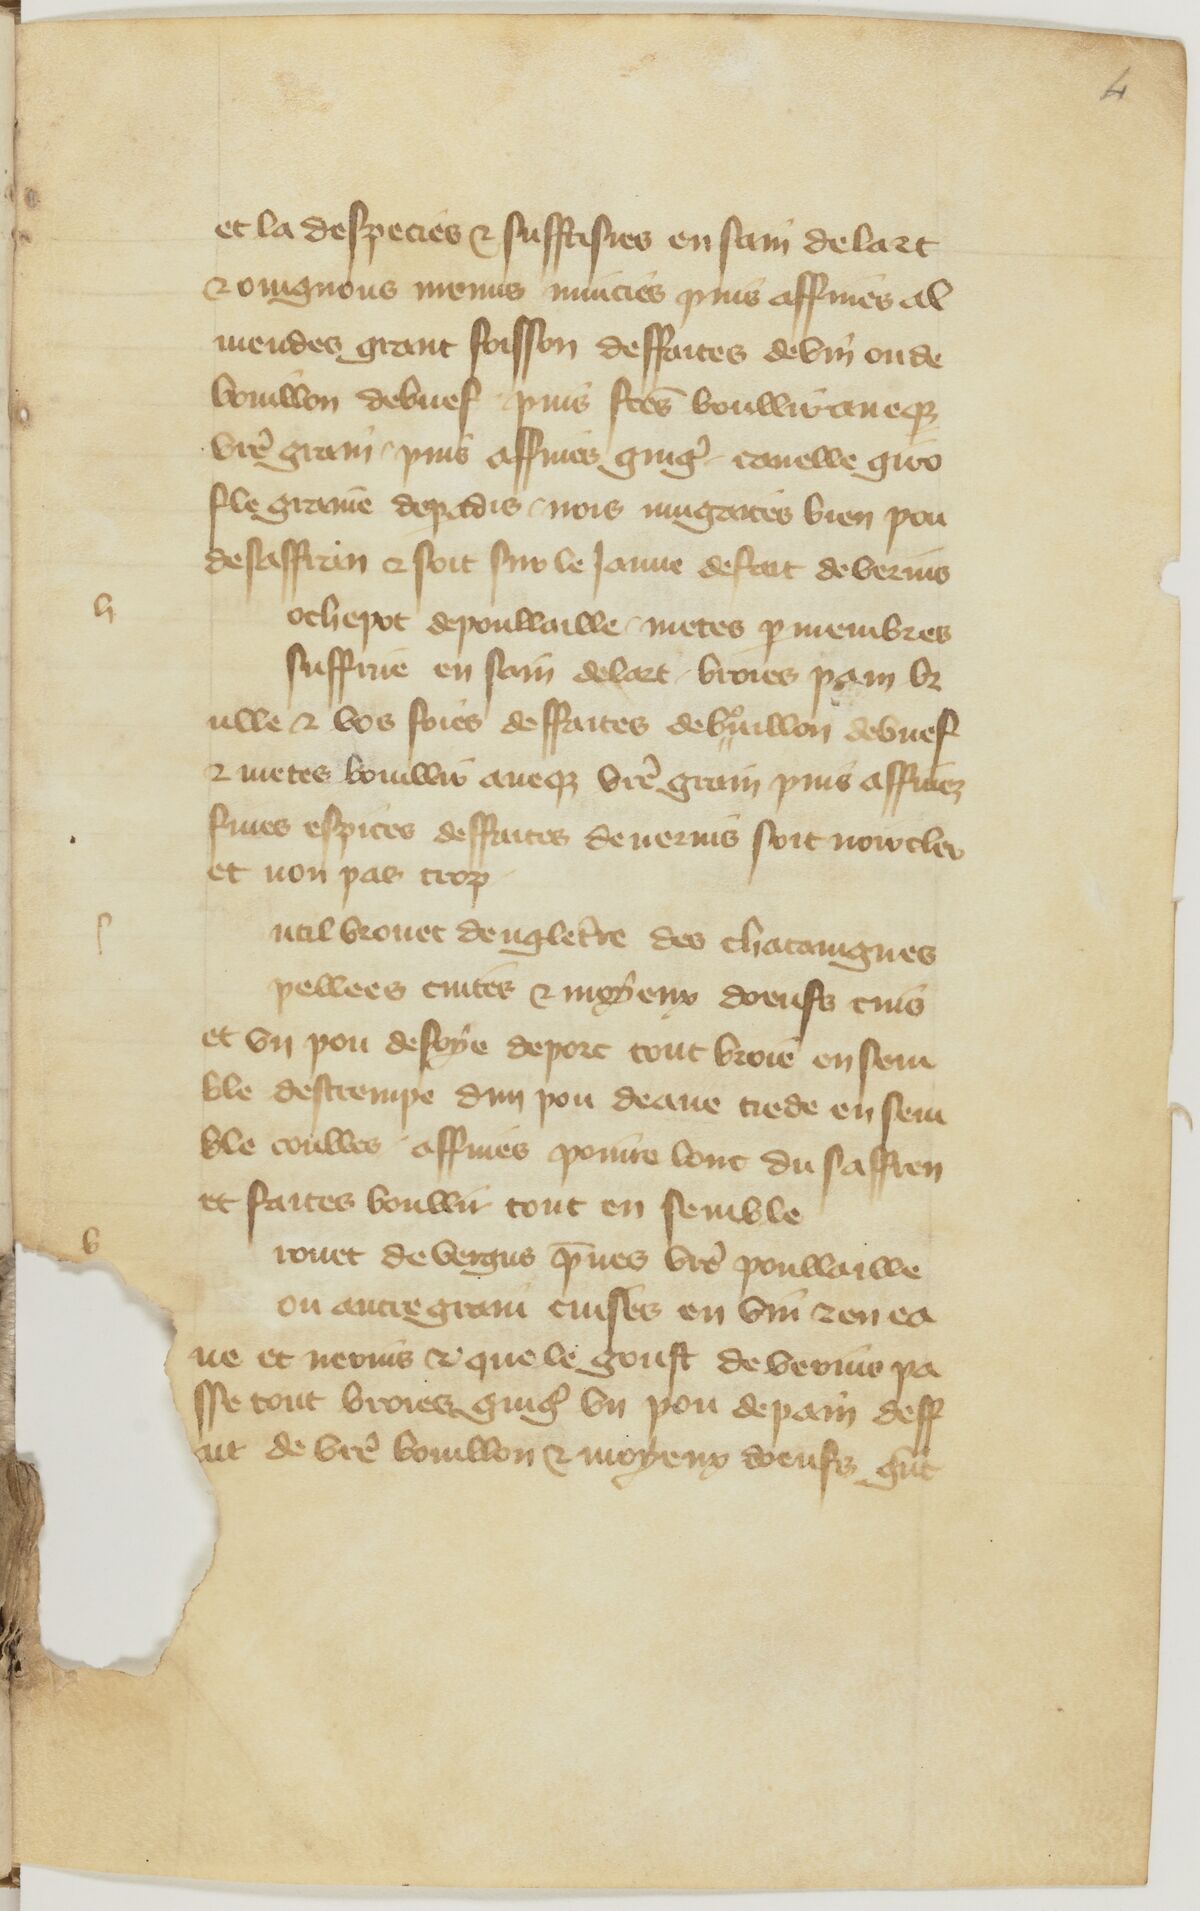 4
et la despecies & suffrisies en sain de lart
& oingnons menus minciés puis affinés al
mendes grant foisson deffaites de vin ou de
bouillon de buef puis fctēs boullir aueqz
vrē grain puis affines ging̉ canelle giro
fle graine de padis nois mugaites bien pou
de saffran & soit sur le Jaune defait de verius
h ochepot de poullaille metes p membres
suffrire en sain de lart broies pain br
ulle & vos foies deffaites de bouillon de buef
& metes boullir aueqz vrē grain puis affinez
fines espices deffaites de uerius soit noir cler
et non pas trop
s util brouet dengletre des chataingnes
pellees cuites & moyeux doeufs cuis
et vn pou de foye de porc tout broie en sem
ble destrempe dun pou deaue tiede en sem
ble coulles affines poiure lonc du saffren
et faites boullir tout en semble
b rouet de vergus p̄nes vrē poullaille
ou autre grain cuises en vin & en ea
ue et uerius & que le goust de verius pa
sse tout broies ging̉ vn pou de pain deff
ait de vrē bouillon & moyeux doeufs